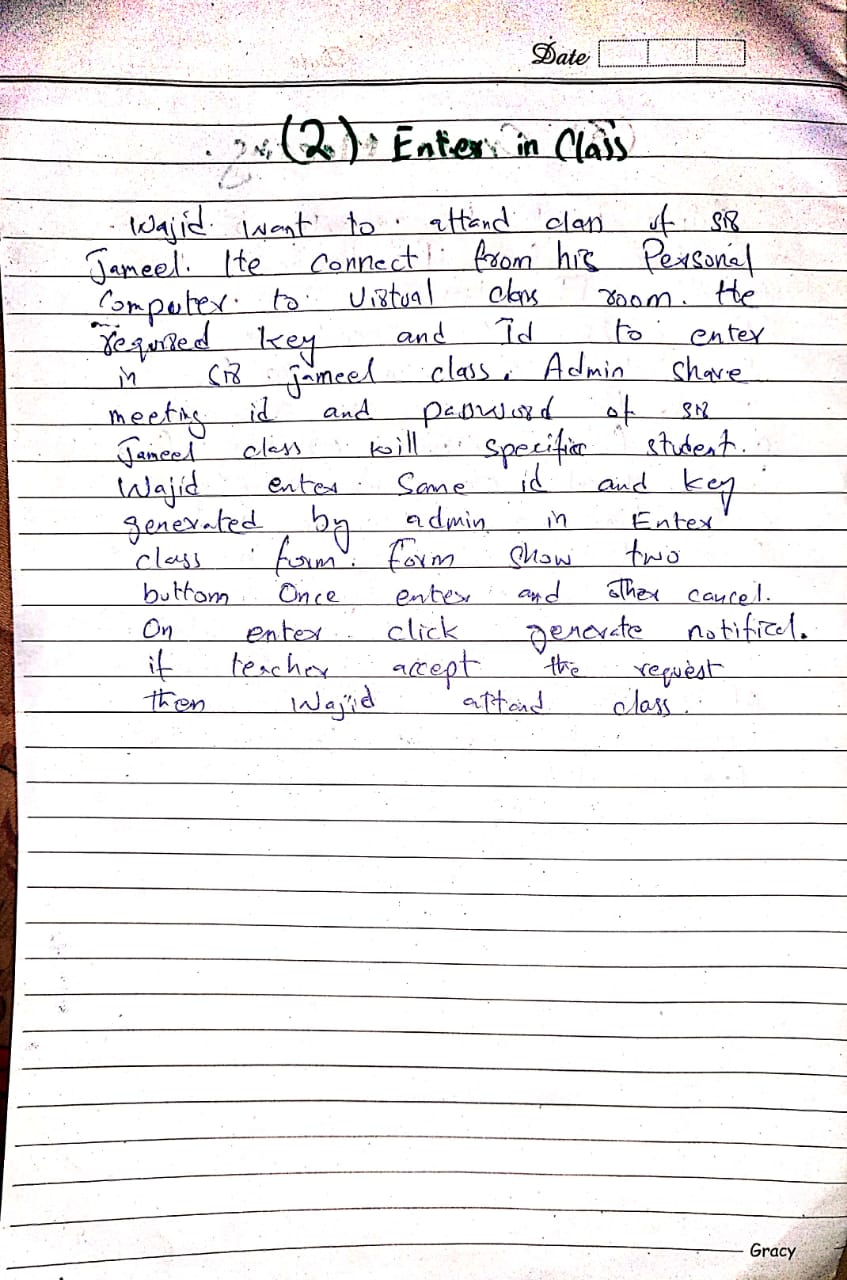 Date
(2) Enter in Class
Wajid want to attand class of sir
Jameel. He connect from his Personal
Computer to virtual class room. He
required key and Id to enter
in sir jameel class. Admin share
meeting id and password of sir
Jameel class will specific student.
Wajid enter Same id and key
generated by admin in Enter
class form. form show two
buttom Once enter and other cancel.
On enter click generate notificel.
if teacher accept the request
then Wajid attand class.
Gracy